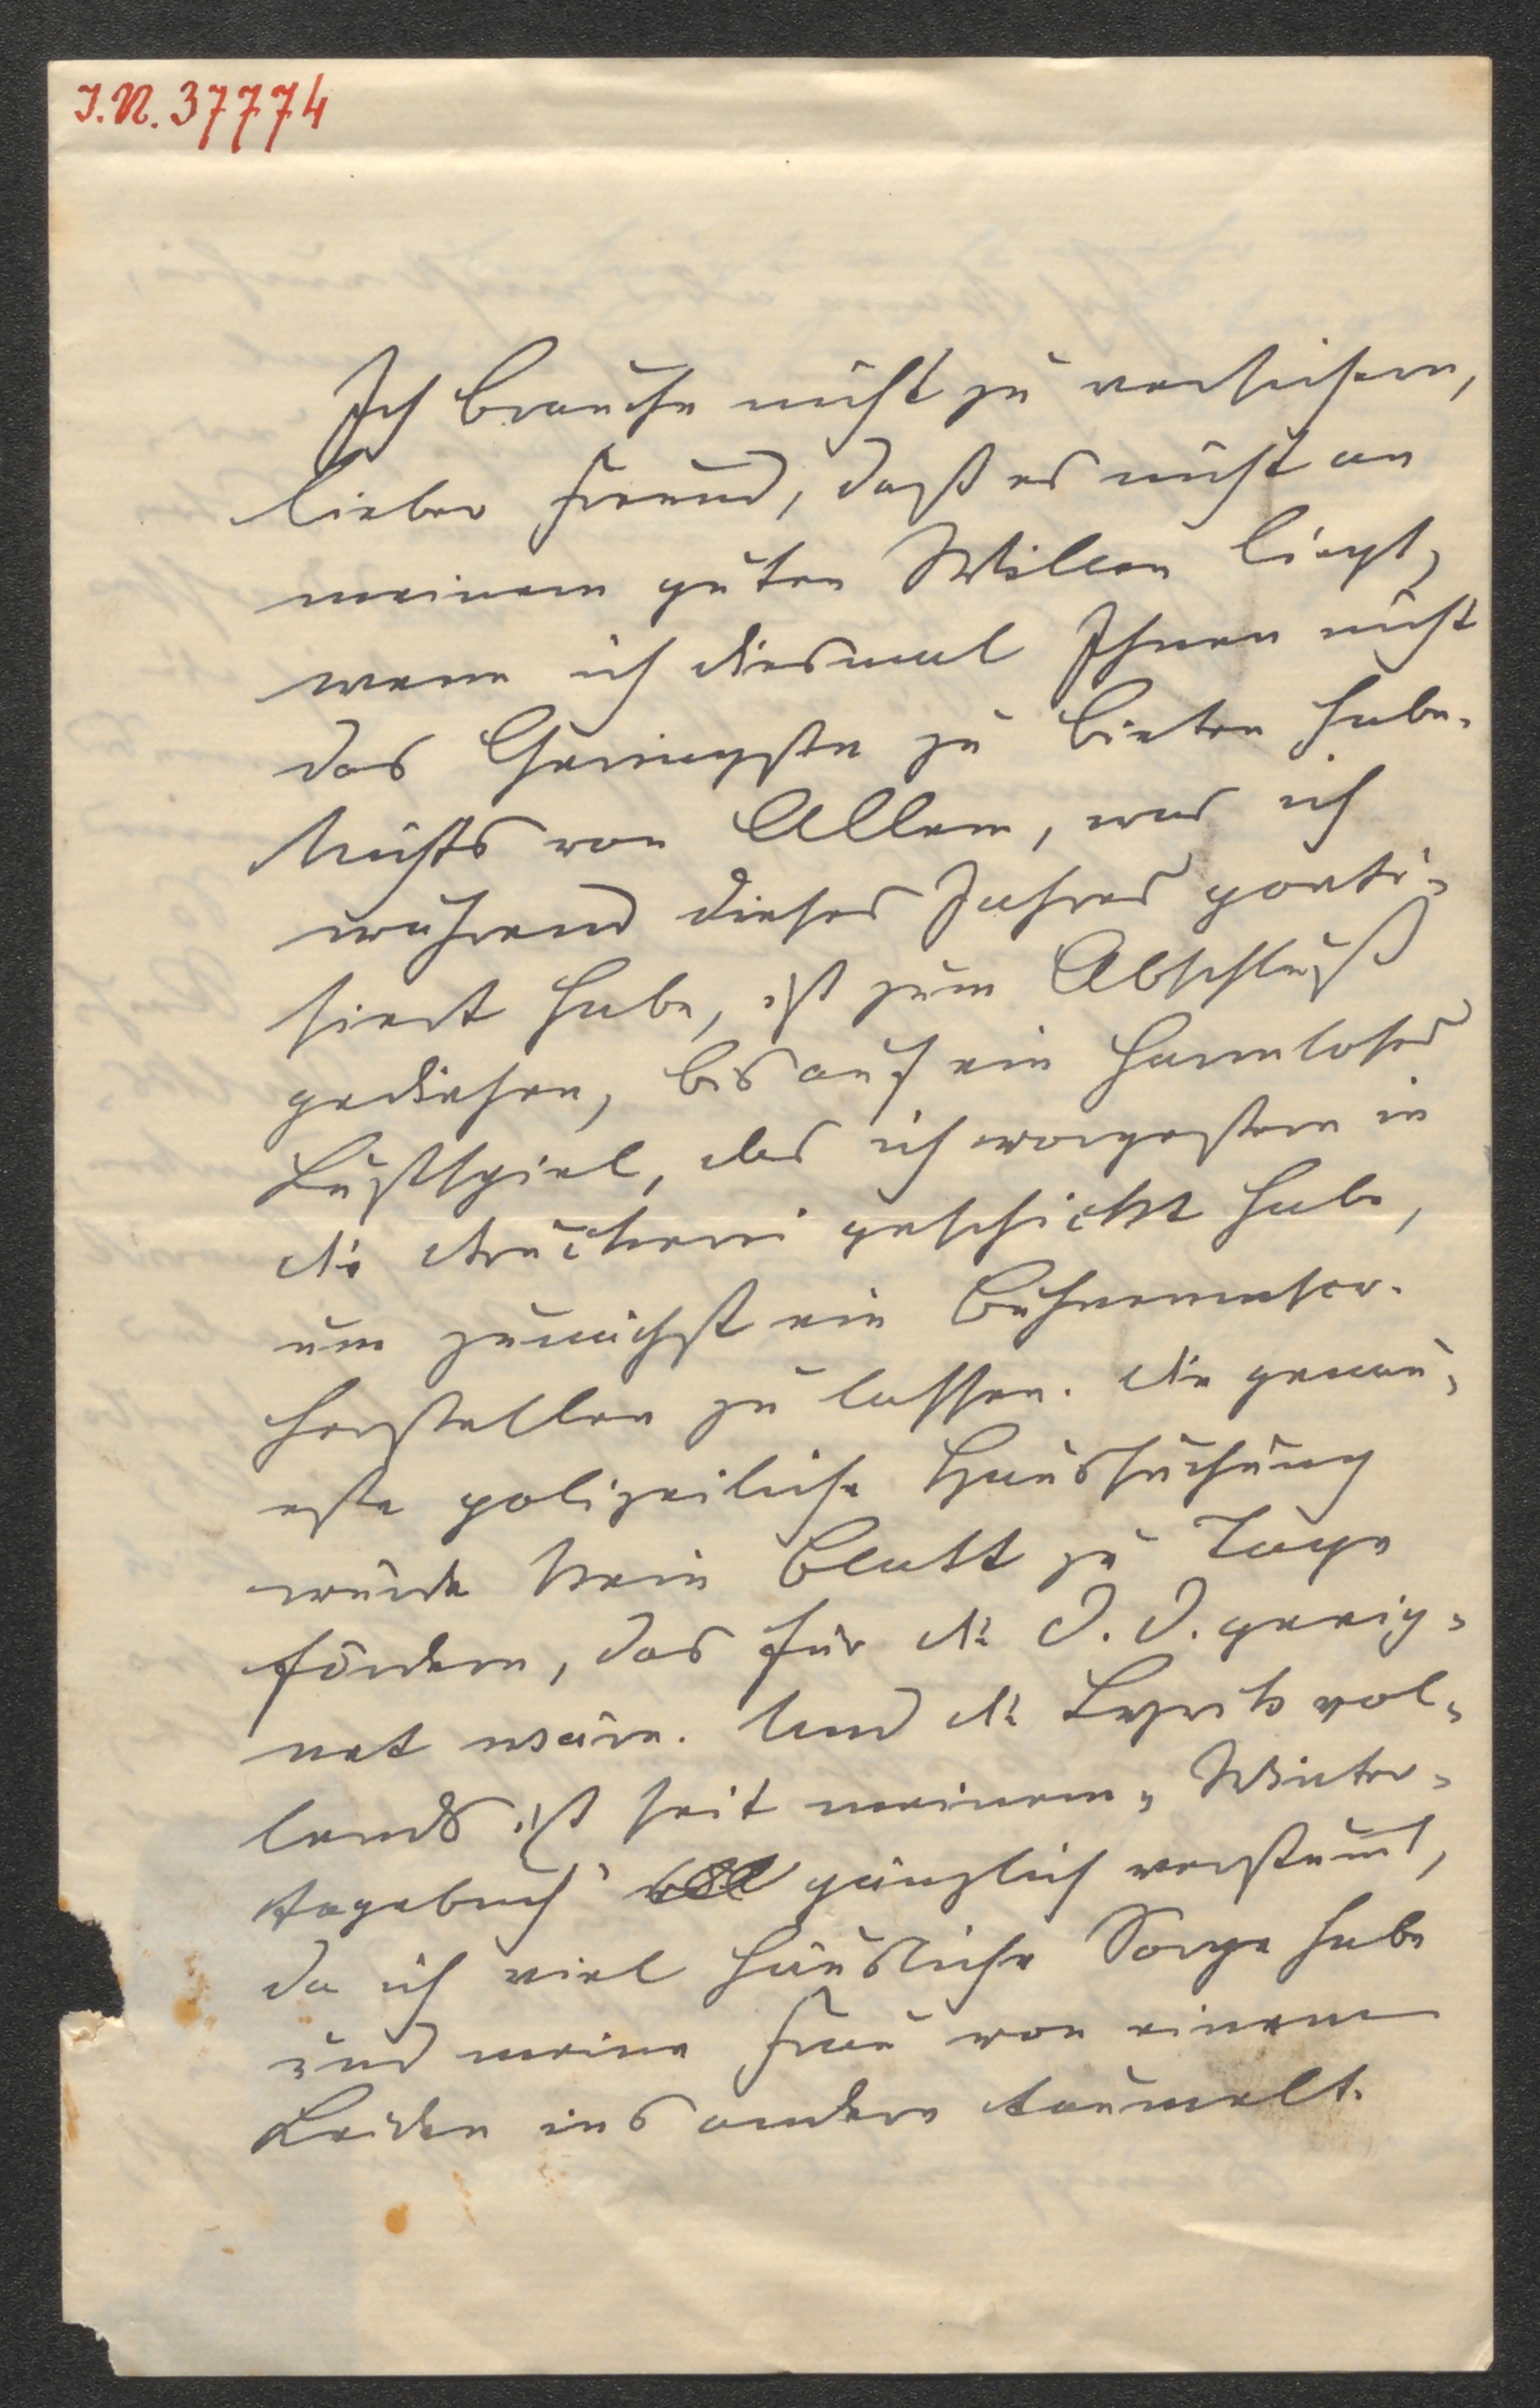 I.N. 37774
Ich brauche nicht zu versichern,
lieber Freund, daß es nicht an
meinem guten Willen liegt,
wenn ich diesmal Ihnen nicht
das Geringste zu bieten habe.
Nichts von Allem, was ich
während dieses Jahres poeti-
sirt habe, ist zum Abschluß
gediehen, bis auf ein harmloses
Lustspiel, das ich vorgestern in
die Druckerei geschickt habe,
um zunächst ein Bühnenmscr.
herstellen zu lassen. Die genau-
este polizeiliche Haussuchung
würde kein Blatt zu Tage
fördern, das für die D. D. geeig-
net wäre. Und die Lyrik vol-
lends ist seit meinem „Winter-
tagebuch" gänzlich verstumt,
da ich viel häusliche Sorge habe
und meine Frau von einem
Leiden ins andere taumelt.